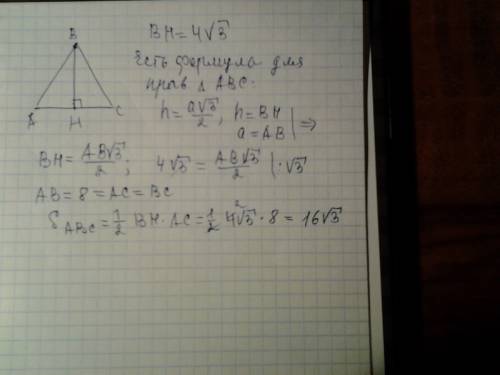 B
A
H
C
BH = 4√3
Есть формула для
прав. Δ ABC:
h = a√3/2, h = BH
a = AB | ⇒
BH = AB√3/2; 4√3 = AB√3/2 | :√3
AB = 8 = AC = BC
S ABC = 1/2 BH · AC = 1/2 4√3 · 8 = 16√3
2